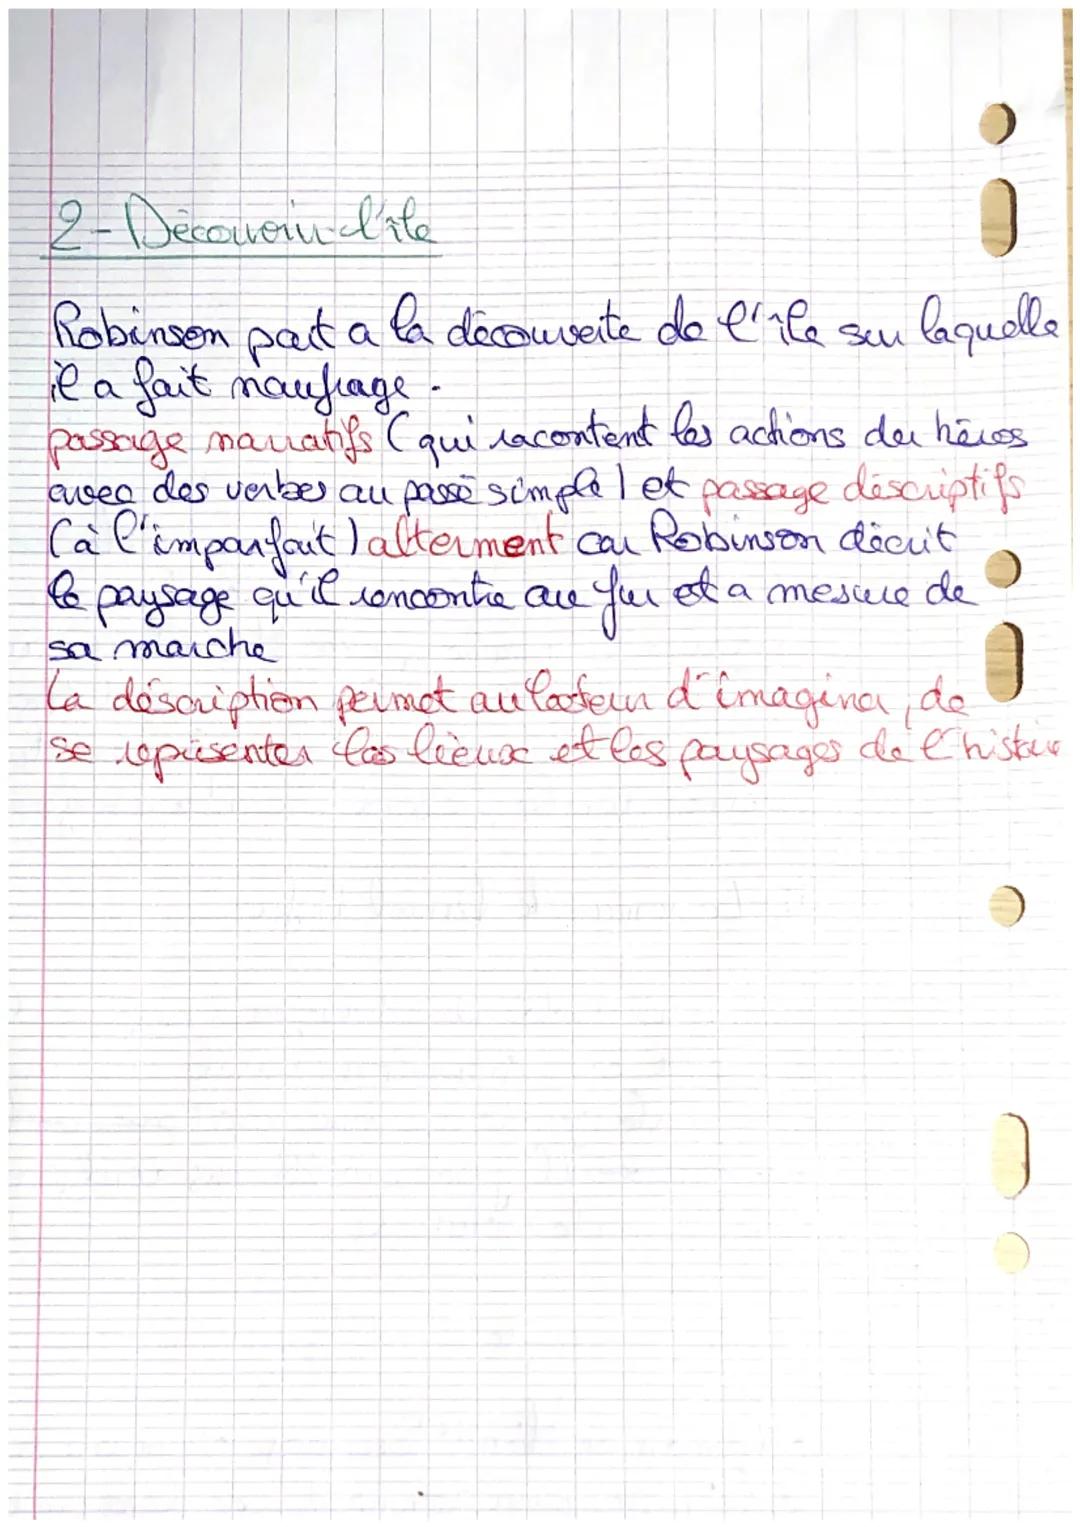 2-Découvrir l'île
Robinson part a la découverte de l'île sur laquelle
il a fait naufrage.
passage narratifs (qui racontent les actions du héros
avec des verbes au passé simple) et passage déscriptifs
(à l'imparfait) alterment car Robinson décrit
le paysage qu'il rencontre au fur et a mesure de
sa marche
La déscription permet au lecteur d'imaginer, de
se représenter les lieux et les paysages de l'histoire